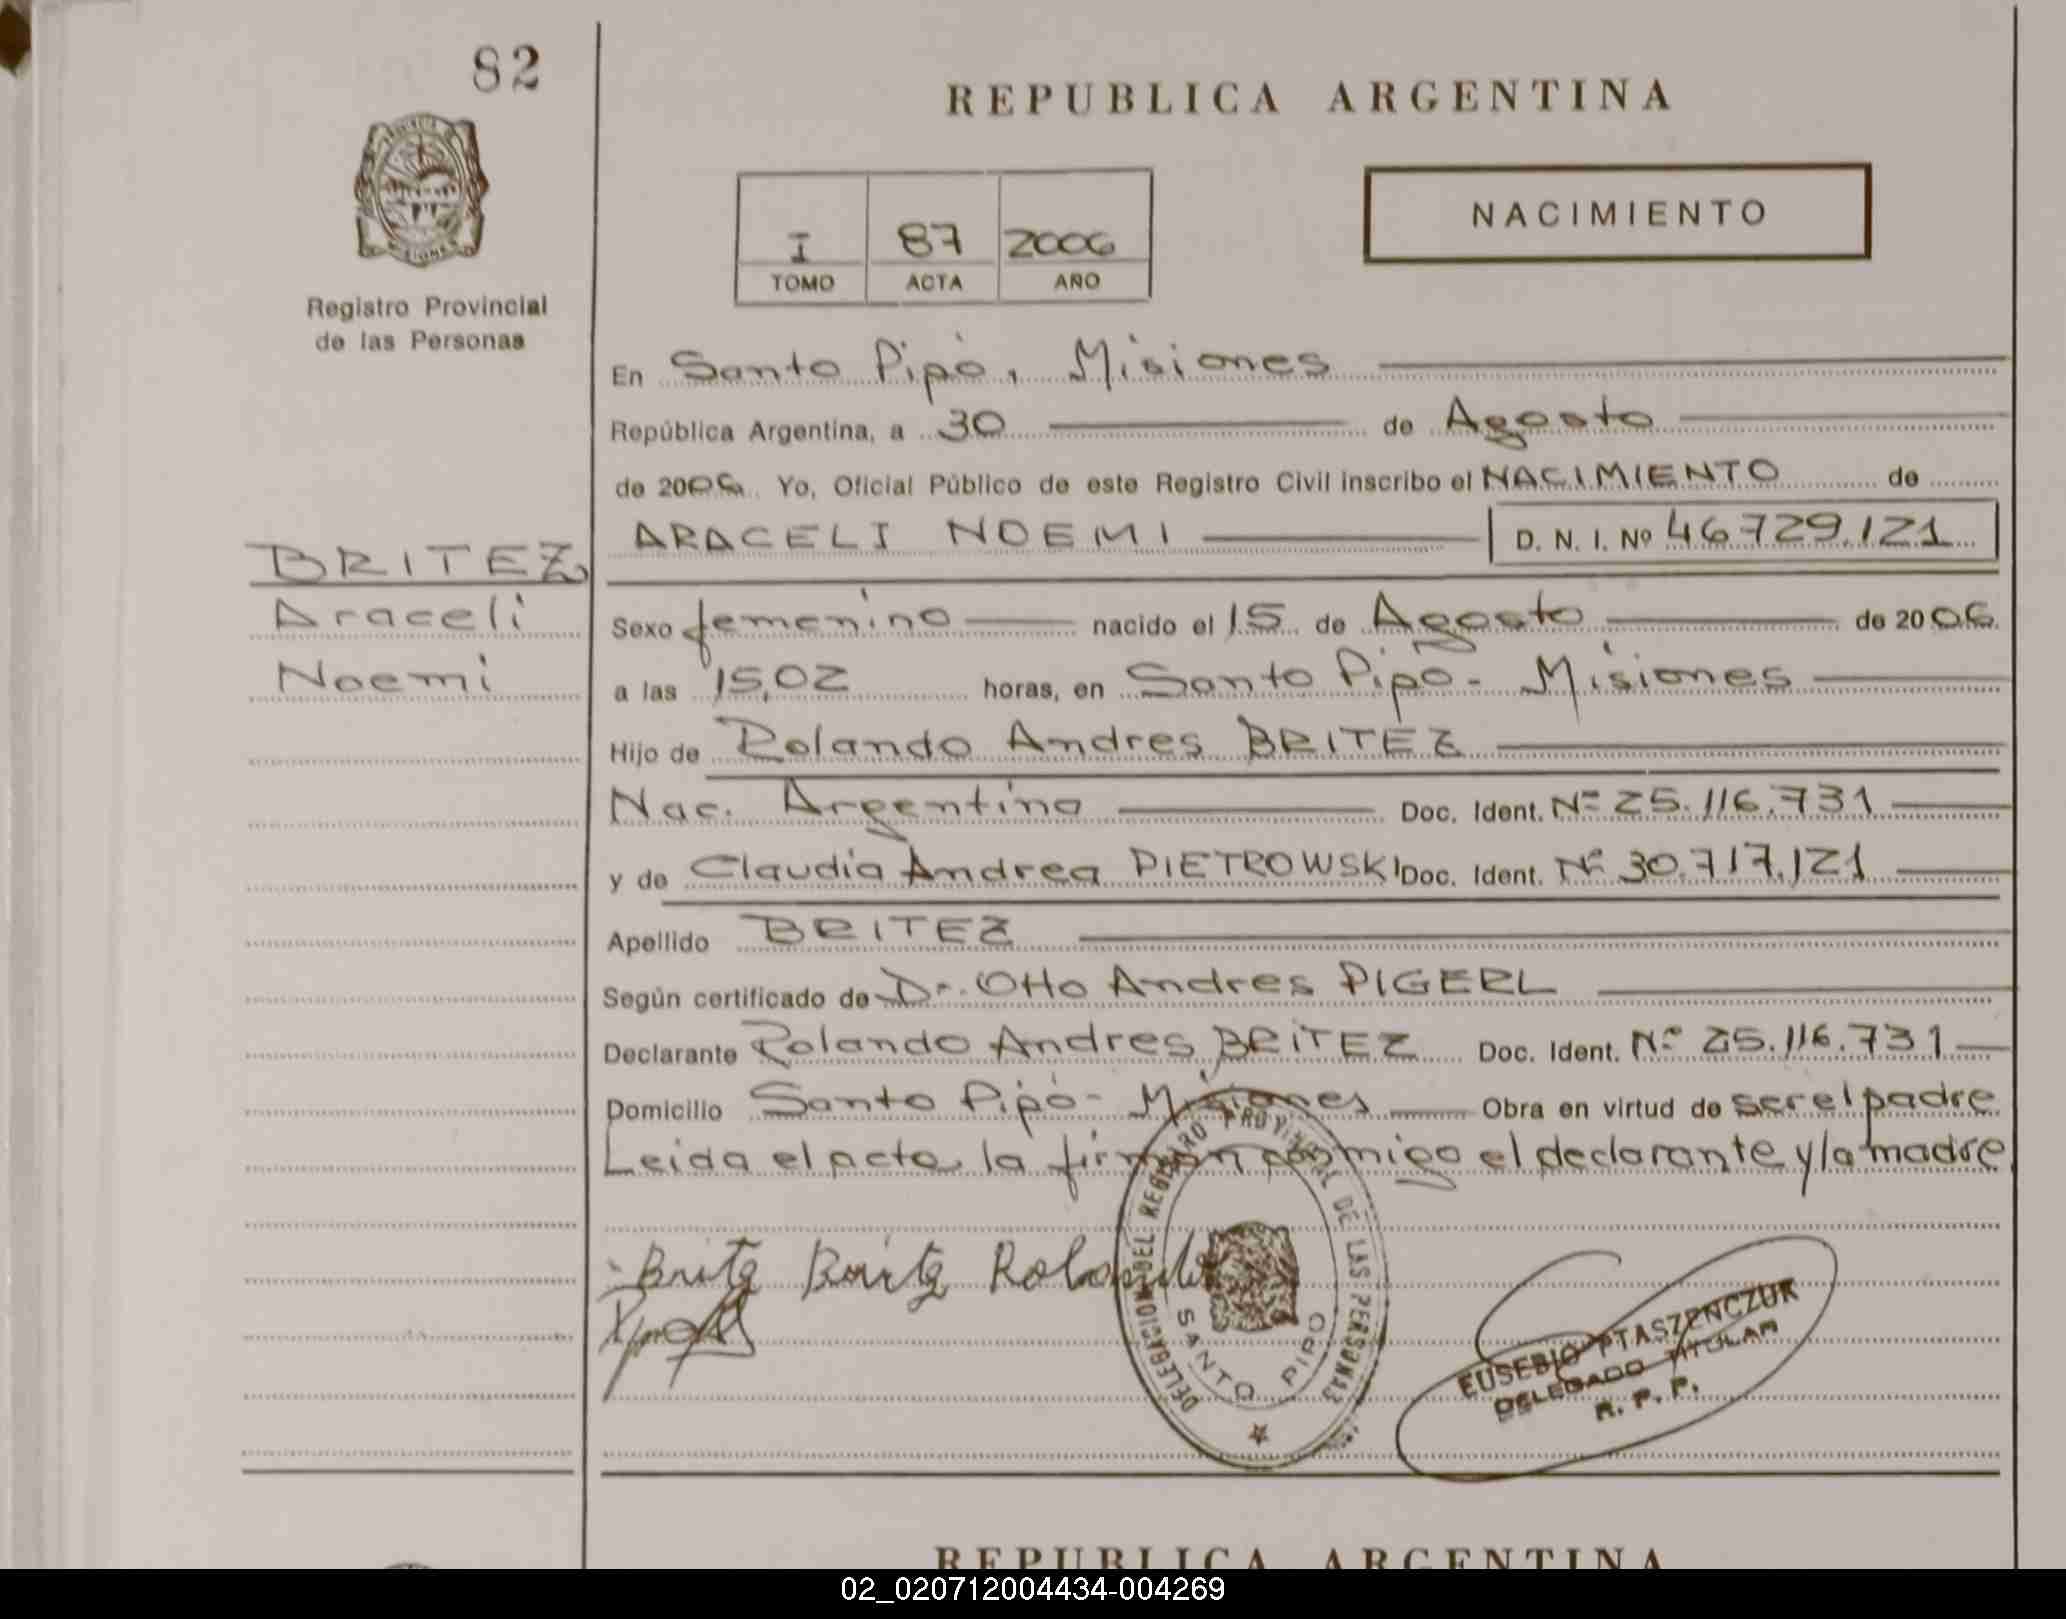 82
REPUBLICA ARGENTINA
NACIMIENTO
I 87 2006
TOMO ACTA AÑO
Registro Provincial
de las Personas
En Santo Pipó, Misiones
República Argentina, a 30 de Agosto
de 2006 Yo, Oficial Público de este Registro Civil inscribo el NACIMIENTO de
ARACELI NOEMI D. N. I. Nº 46.729.121
BRITEZ,
Araceli
Noemi
Sexo femenino nacido el 15 de Agosto de 2006
a las 15,02 horas, en Santo Pipó - Misiones
Hijo de Rolando Andres BRITEZ
Nac. Argentina Doc. Ident. Nº 25.116.731
y de Claudia Andrea PIETROWSKI Doc. Ident. Nº 30.717.121
Apellido BRITEZ
Según certificado de Dr. Otto Andres PIGERL
Declarante Rolando Andres BRITEZ Doc. Ident. Nº 25.116.731
Domicilio Santo Pipó - Misiones Obra en virtud de ser el padre
Leida el acta, la firman conmigo el declarante y la madre
Britez Britez Rolando
DELEGACION DEL REGISTRO PROVINCIAL DE LAS PERSONAS
SANTO PIPO
EUSEBIO PTASZENCZUK
DELEGADO TITULAR
R. P. P.
REPUBLICA ARGENTINA
02_020712004434-004269